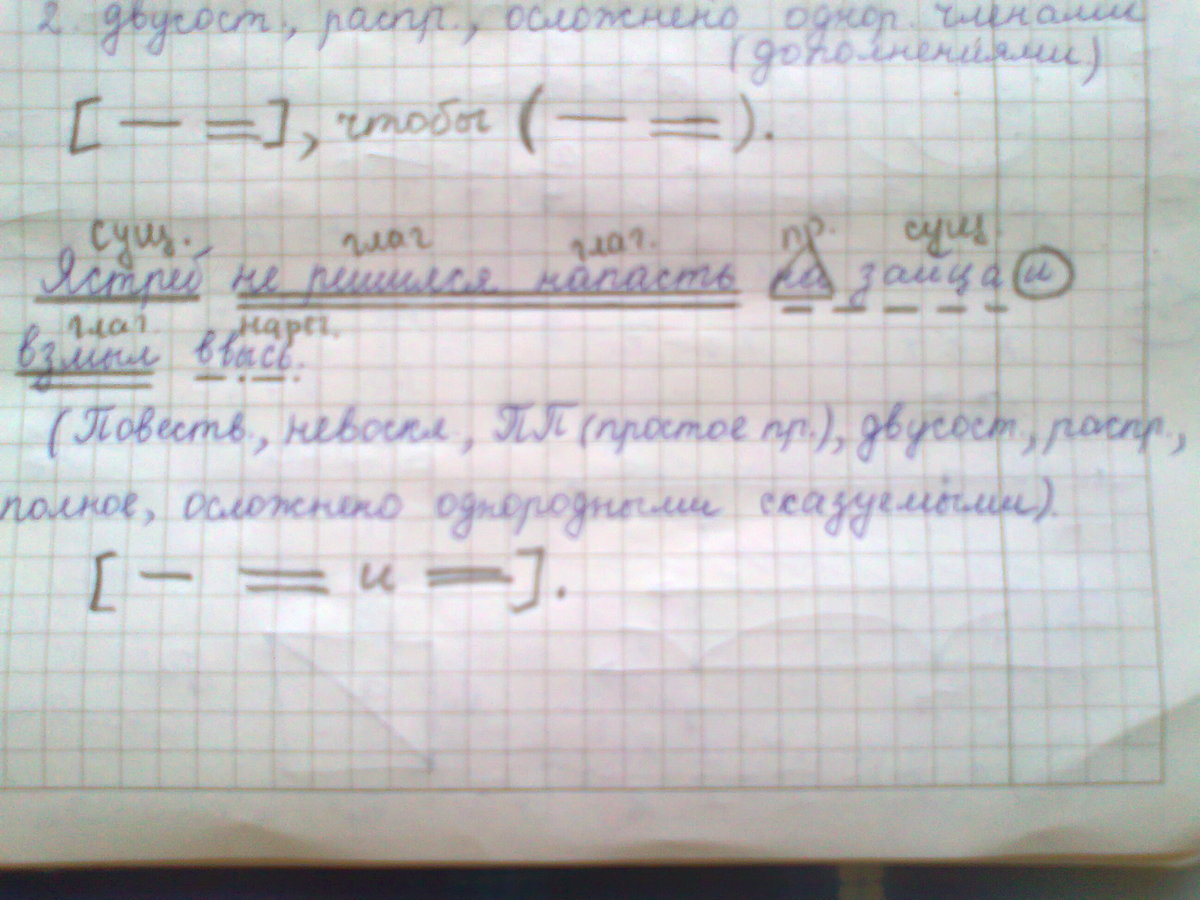 2. двусост., распр., осложнено однор. членами
(дополнениями)
[— =], чтобы (— =).
сущ. глаг глаг. пр. сущ.
Ястреб не решился напасть на зайца и
глаг нареч.
взмыл ввысь.
(Повеств., невоскл., ПП (простое пр.), двусост., распр.,
полное, осложнено однородными сказуемыми).
[— = и =].